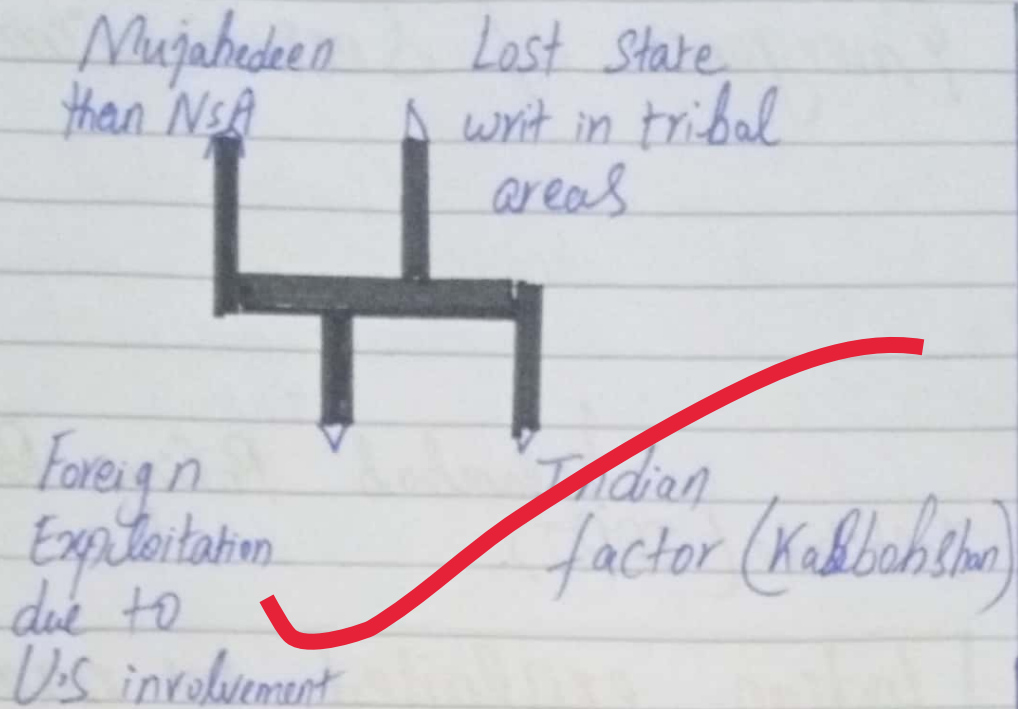 Mujahedeen
than NSA
Lost State
writ in tribal
areas
Foreign
Exploitation
due to
U.S involvement
Indian
factor (Kalbohshan)